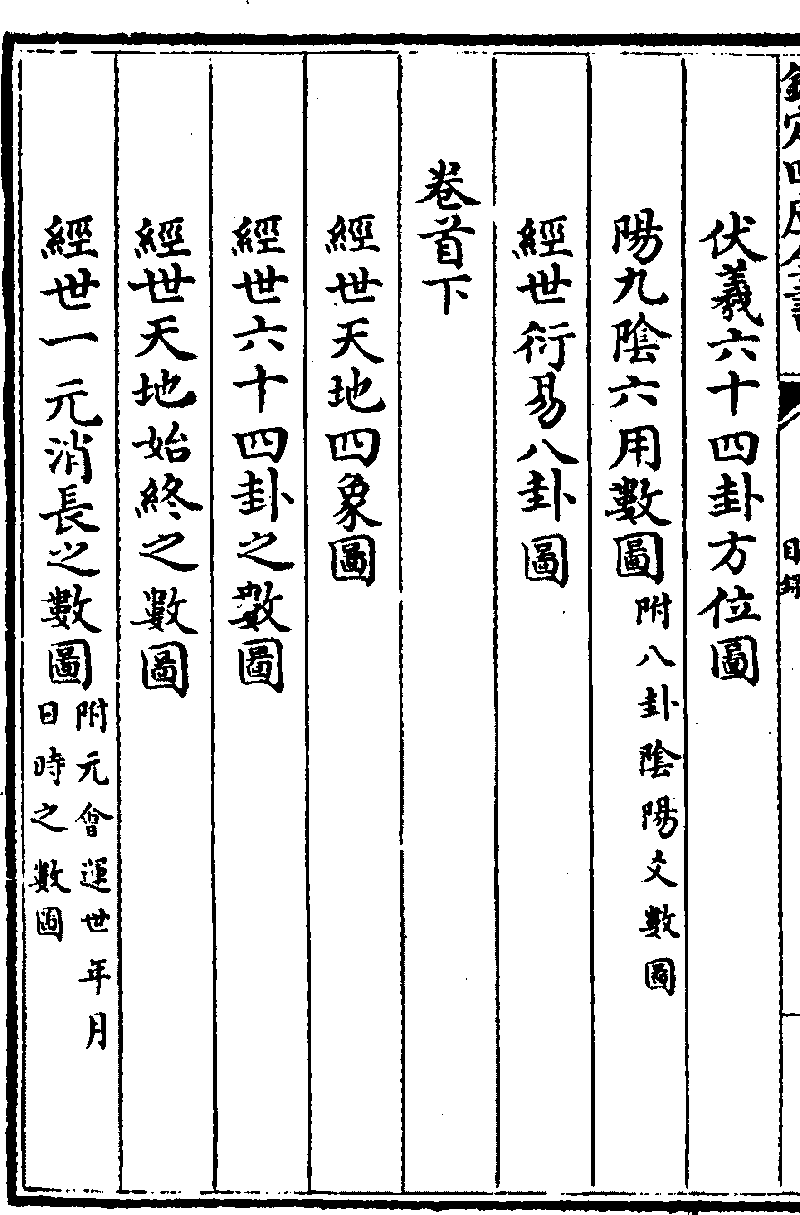 欽定四庫全書
目録
伏羲六十四卦方位圖
陽九陰六用數圖附八卦陰陽爻數圖
經世衍易八卦圖
卷首下
經世天地四象圖
經世六十四卦之數圖
經世天地始終之數圖
經世一元消長之數圖附元會運世年月
日時之數圖